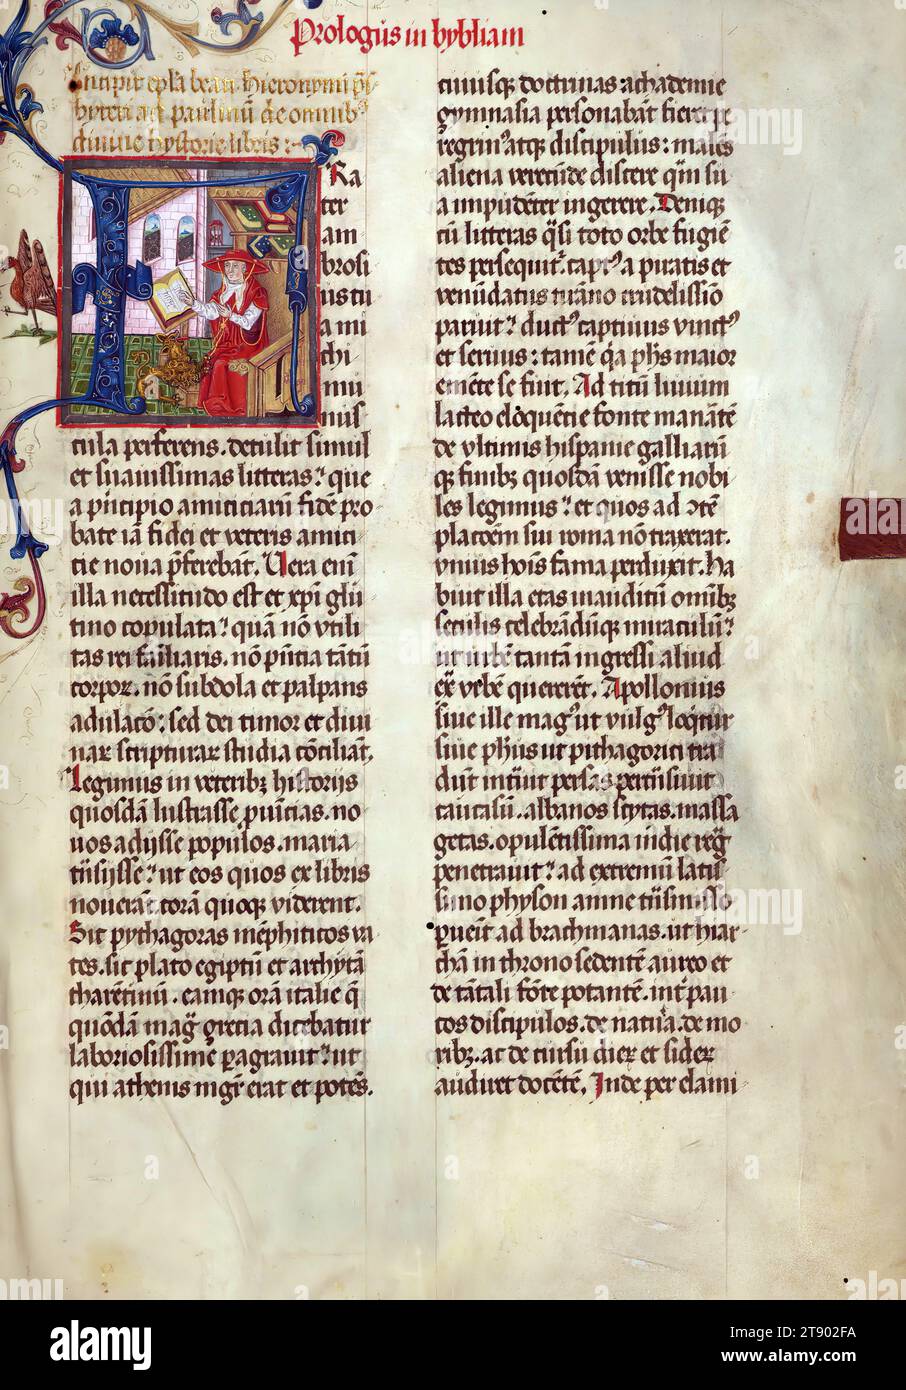 Prologus in bybliam
Incipit ep̄la beati Hieronymi p̄s
byteri ad paulinū de omnibꝰ
diuine hystorie libris :
FRa
ter
am
brosi
us tu
a mi
chi
mu
nus
cula perferens. detulit simul
et suauissimas litteras? que
a p̄ncipio amiciciarū fidē pro
bate iā fidei et veteris amici
cie noua p̄ferebāt. Uera enī
illa necessitudo est et xp̄i glu
tino copulata? quā nō vtili
tas rei fāiliaris. nō p̄ncia tātū
corpoꝝ. nō subdola et palpans
adulacō: sed dei timor et diui
naꝝ scripturaꝝ studia cōciliāt.
Legimus in veteribꝫ historijs
quosdā lustrasse p̄uincias. no
uos adijsse populos. maria
trāsijsse? ut eos quos ex libris
nouerāt. corā quoqꝫ viderent.
Sic pythagoras mēphiticos va
tes. sic plato egiptū et archytā
tharētinū. eamqꝫ orā italie q̄
quōdā mag̃ grecia dicebatur
laboriosissime ꝑagrauit? ut
qui athenis mgr̄ erat et potēs.
cuiusqꝫ doctrinas achademie
gymnasia personabāt fieret pe
regrinꝰ atqꝫ discipulus: malēs
aliena verecūde discere qm̄ su
a impudēter ingerere. Deniqꝫ
cū litteras q̄si toto orbe fugiē
tes persequit̉. captꝰ a piratis et
venūdatus tirāno crudelissiō
paruit? ductꝰ captiuus vinctꝰ
et seruus: tamē q̄a ph̄s maior
emēte se fuit. Ad titū liuium
lacteo eloquētie fonte manātē
de vltimis hispanie galliarū
qꝫ finibꝫ quosdā venisse nobi
les legimus? et quos ad ↄtē
placoēm sui roma nō traxerat.
vnius hoīs fama perduxit. Ha
buit illa etas inauditū omībꝫ
seculis celebrādūqꝫ miraculū?
ut urbē tantā ingressi aliud
ex̄ vrbē quererēt. Apollonius
siue ille magꝰ ut vulgꝰ loq̄tur
siue ph̄us ut pithagorici tra
dūt intrāuit persas ꝑtrāsiuit
caucasū. albanos scytas. massa
getas. opulētissima indie regā
penetrauit? ad extremū latis
simo physon amne trāsmisso
ꝑueīt ad brachmanas. ut hiar
chā in throno sedentē aureo et
de tātali fōte potantē. intꝰ pau
cos discipulos. de natuīa. de mo
ribꝫ. ac de cursu dieꝝ et sideꝝ
audiret docētē. Inde per elami
alamy
Image ID: 2T902FA
www.alamy.com
2T902FA